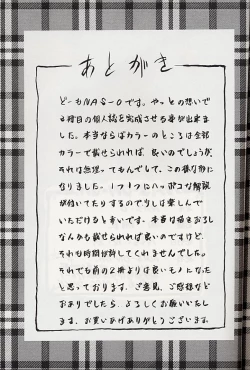 あとがき
どーもNAS-Oです。やっとの想いで
2冊目の個人誌を完成させる事が出来ま
した。本当ならばカラーのところは全部
カラーで載せられれば、良いのでしょうが、
それは無理ってもんでして、この様な形に
なりました。1つ1つにヘッポコな解説
が付いてたりするので少しは楽しんで
いただけると幸いです。本当は描きおろし
なんかも載せられれば良いのですけど、
それも時間が許してくれませんでした。
それでも前の2冊よりは良いモノになった
と思っております。ご意見、ご感想など
おありでしたら、よろしくお願いいたし
ます。お買いあげありがとうございます。